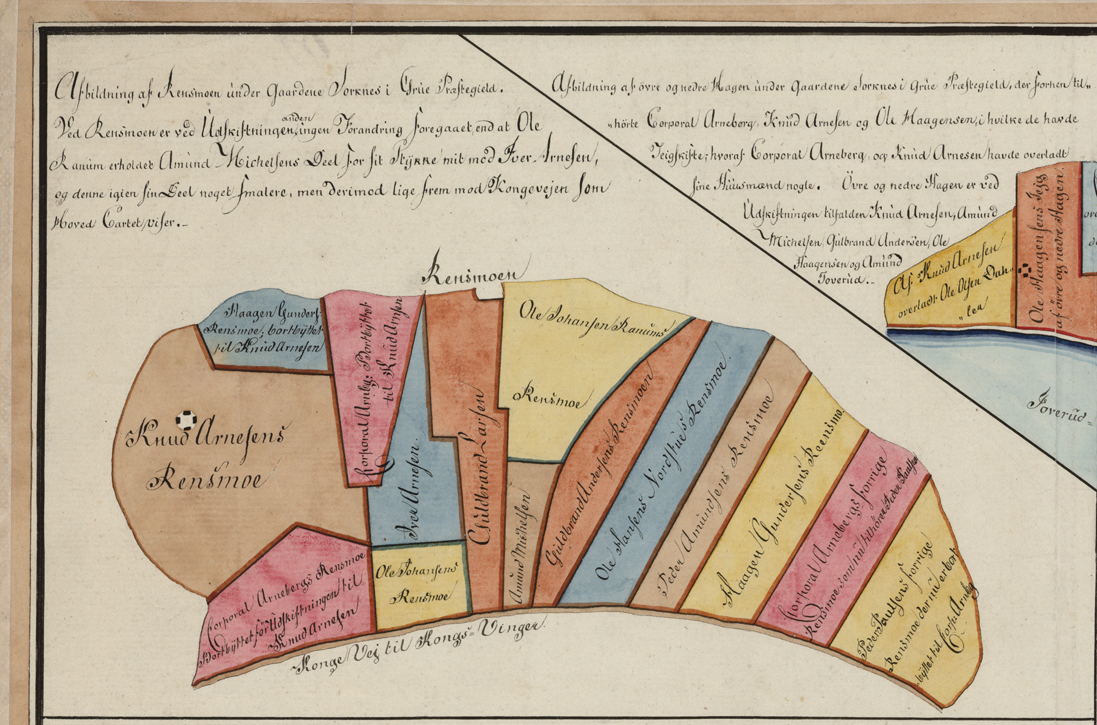 Afbildning af Rensmoen under Gaardene Sorknes i Grue Præstegield.
Ved Rensmoen er ved Udskiftningen, ingen
anden
Forandring Foregaaet, end at Ole
Ranum erholdet Amund Michelsens Deel for sit Stykke mit mod Iver Arnesen,
og denne igien sin Deel noget smalere, men derimod lige frem mod Kongeveien som
Hoved Cartet viser.
Afbildning af övre og nedre Hagen under Gaardene Sorknes i Grue Præstegield, der forhen til„
„hörte Corporal Arneberg, Knud Arnesen og Ole Haagensen, i hvilke de havde
Teigskifte; hvoraf Corporal Arneberg, og Knud Arnesen havde overladt
sine Huusmænd nogle. Övre og nedre Hagen er ved
Udskiftningen tilfalden Knud Arnesen, Amund
Michelsen, Gulbrand Andersen, Ole
Haagensen og Amund
Foverud.
Af Knud Arnesen
overladt Ole Olsen Dah„
„len
Ole Haagensens Teig
af övre og nedre Hagen.
Foverud-
Rensmoen
Haagen Gunders
Rensmoe, bortbyttet
til Knud Arnesen
Corporal Arnbg: Bortbyttet
til Knud Arnsen
Knud Arnesens
Rensmoe
Iver Arnesen
Gildbrand Larsen
Ole Johansen Ranums
Rensmoe
Amund Michelsen
Guldbrand Andersens Rensmoen
Ole Hansens Nordstues Rensmoe
Peder Amundsens Rensmoe
Haagen Gundersens Reensmoe
Corporal Arnebergs forrige
Rensmoe som nu tilhörer Peder Paulsen
Peder Paulsens forrige
Rensmoe der nu er bort
byttet til Corp: Arnbg
Corporal Arnebergs Rensmoe
Bortbyttet for Udskiftningen til
Knud Arnesen
Ole Johansens
Rensmoe
Konge Vej til Kongs-Vinger